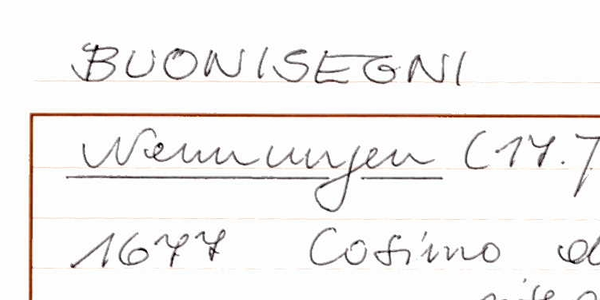 BUONISEGNI
Nennungen (17.
1677 Cosimo